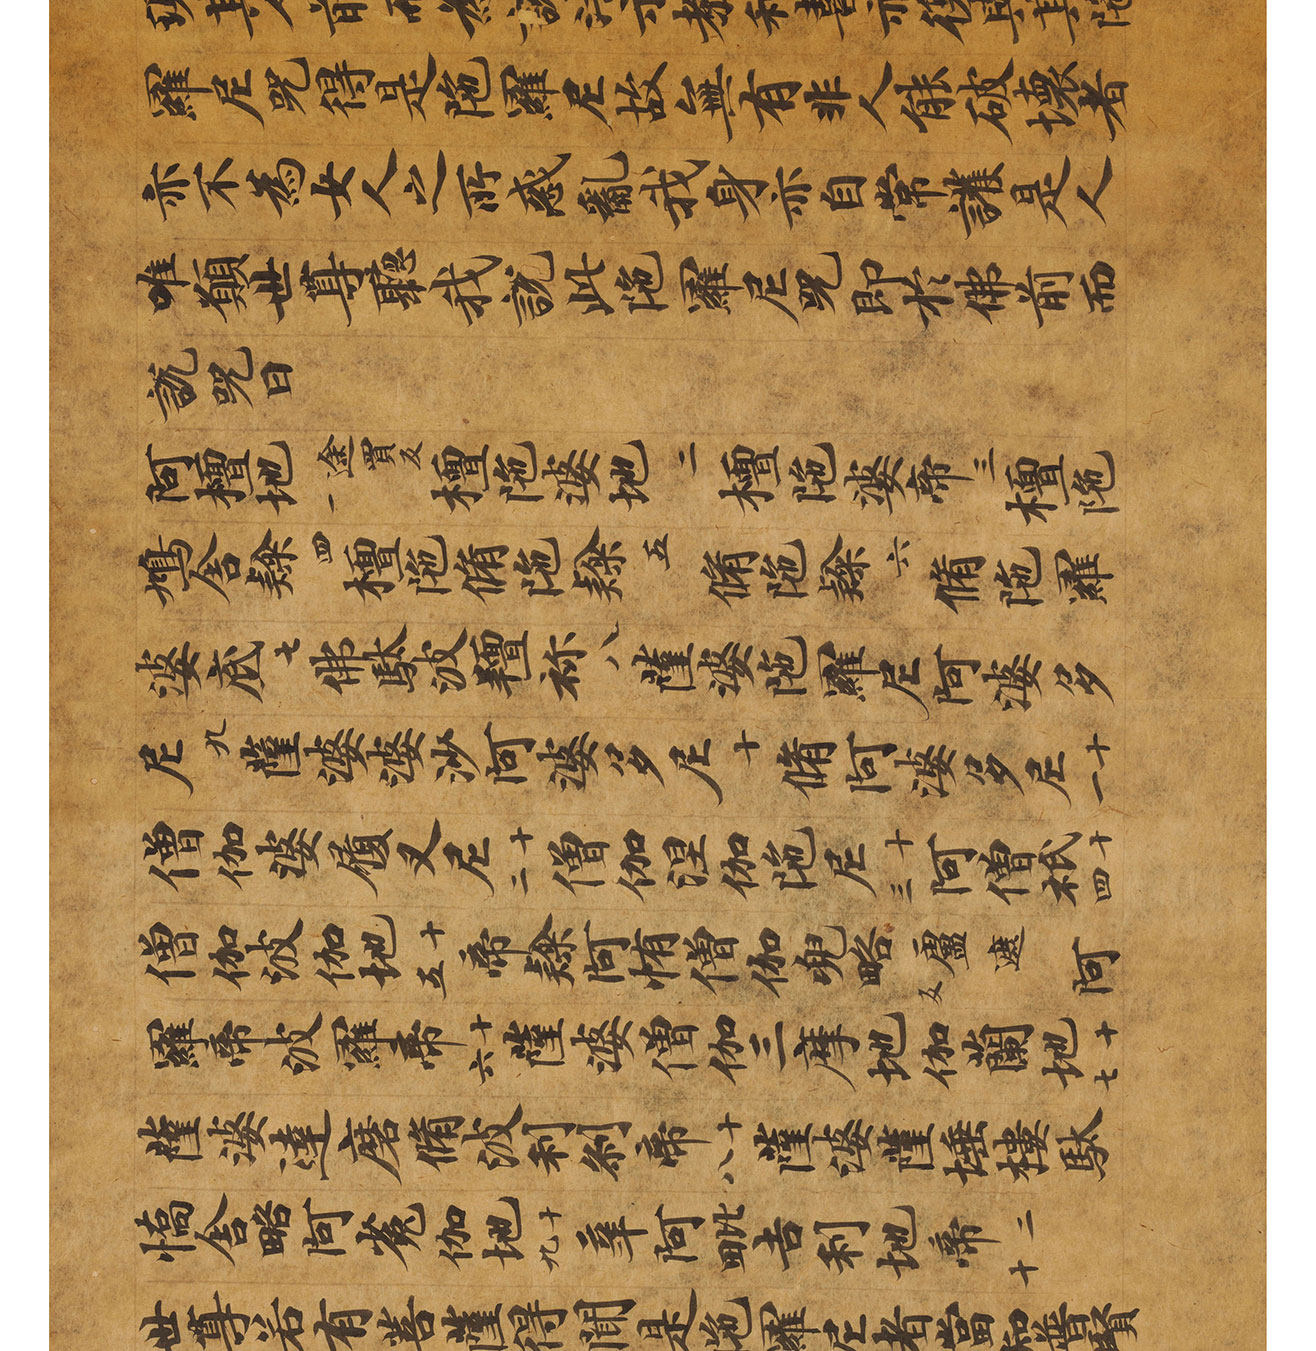 現其人前而為說法示教利喜亦復與其陀
羅尼呪得是陀羅尼故無有非人能破壞者
亦不為女人之所惑亂我身亦自常護是人
唯願世尊聽我說此陀羅尼呪即於佛前而
說呪曰
阿檀地途買反一檀陀婆地二檀陀婆帝三檀陀
鳩舍隸四檀陀脩陀隸五脩陀隸六脩陀羅
婆底七佛馱波羶祢八薩婆陀羅尼阿婆多
尼九薩婆婆沙阿婆多尼十脩阿婆多尼十一
僧伽婆履叉尼十二僧伽涅伽陀尼十三阿僧祇十四
僧伽波伽地十五帝隸阿惰僧伽兜略盧遮反阿
羅帝波羅帝十六薩婆僧伽三摩地伽蘭地十七
薩婆達磨脩波利剎帝十八薩婆薩埵樓馱
憍舍略阿㝹伽地十九辛阿毗吉利地帝二十
世尊若有菩薩得聞是陀羅尼者當知普賢